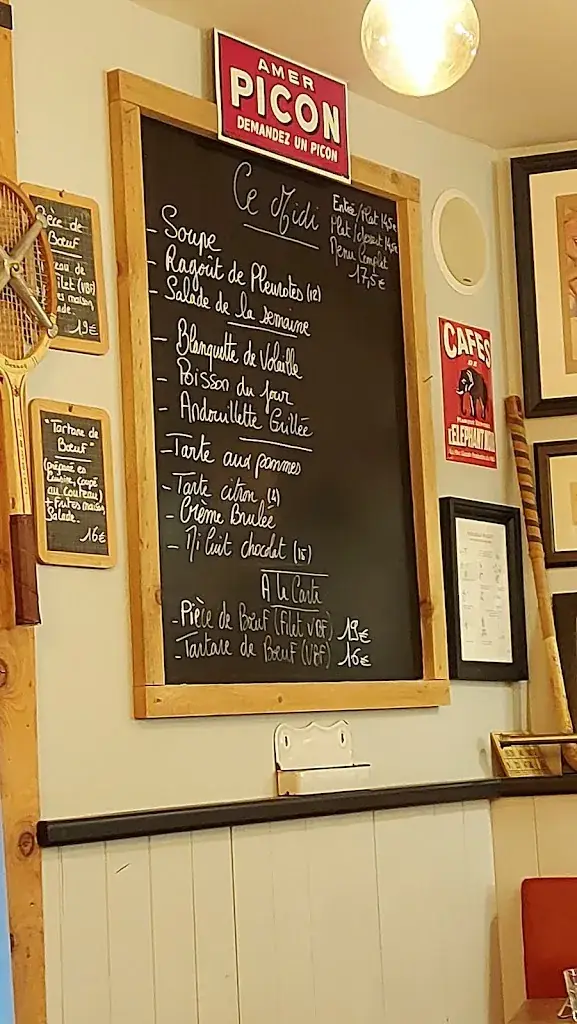 AMER
PICON
DEMANDEZ UN PICON
Ce Midi
Entrée/Plat 14,5€
Plat/dessert 14,5€
Menu Complet
17,5€
- Soupe
- Ragoût de Pleurotes (12)
- Salade de la semaine
- Blanquette de Volaille
- Poisson du jour
- Andouillette Grillée
- Tarte aux pommes
- Tarte citron (4)
- Crème Brulée
- Mi Cuit chocolat (15)
A la Carte
- Pièce de Bœuf (Filet VBF) 19€
- Tartare de Bœuf (VBF) 16€
Pièce de
Bœuf
filet (VBF)
maison
19€
- Tartare de
Bœuf
(préparé en
Cuisine, coupé
au couteau)
+ frites maison
Salade.
16€
CAFÉS
L'ELEPHANT